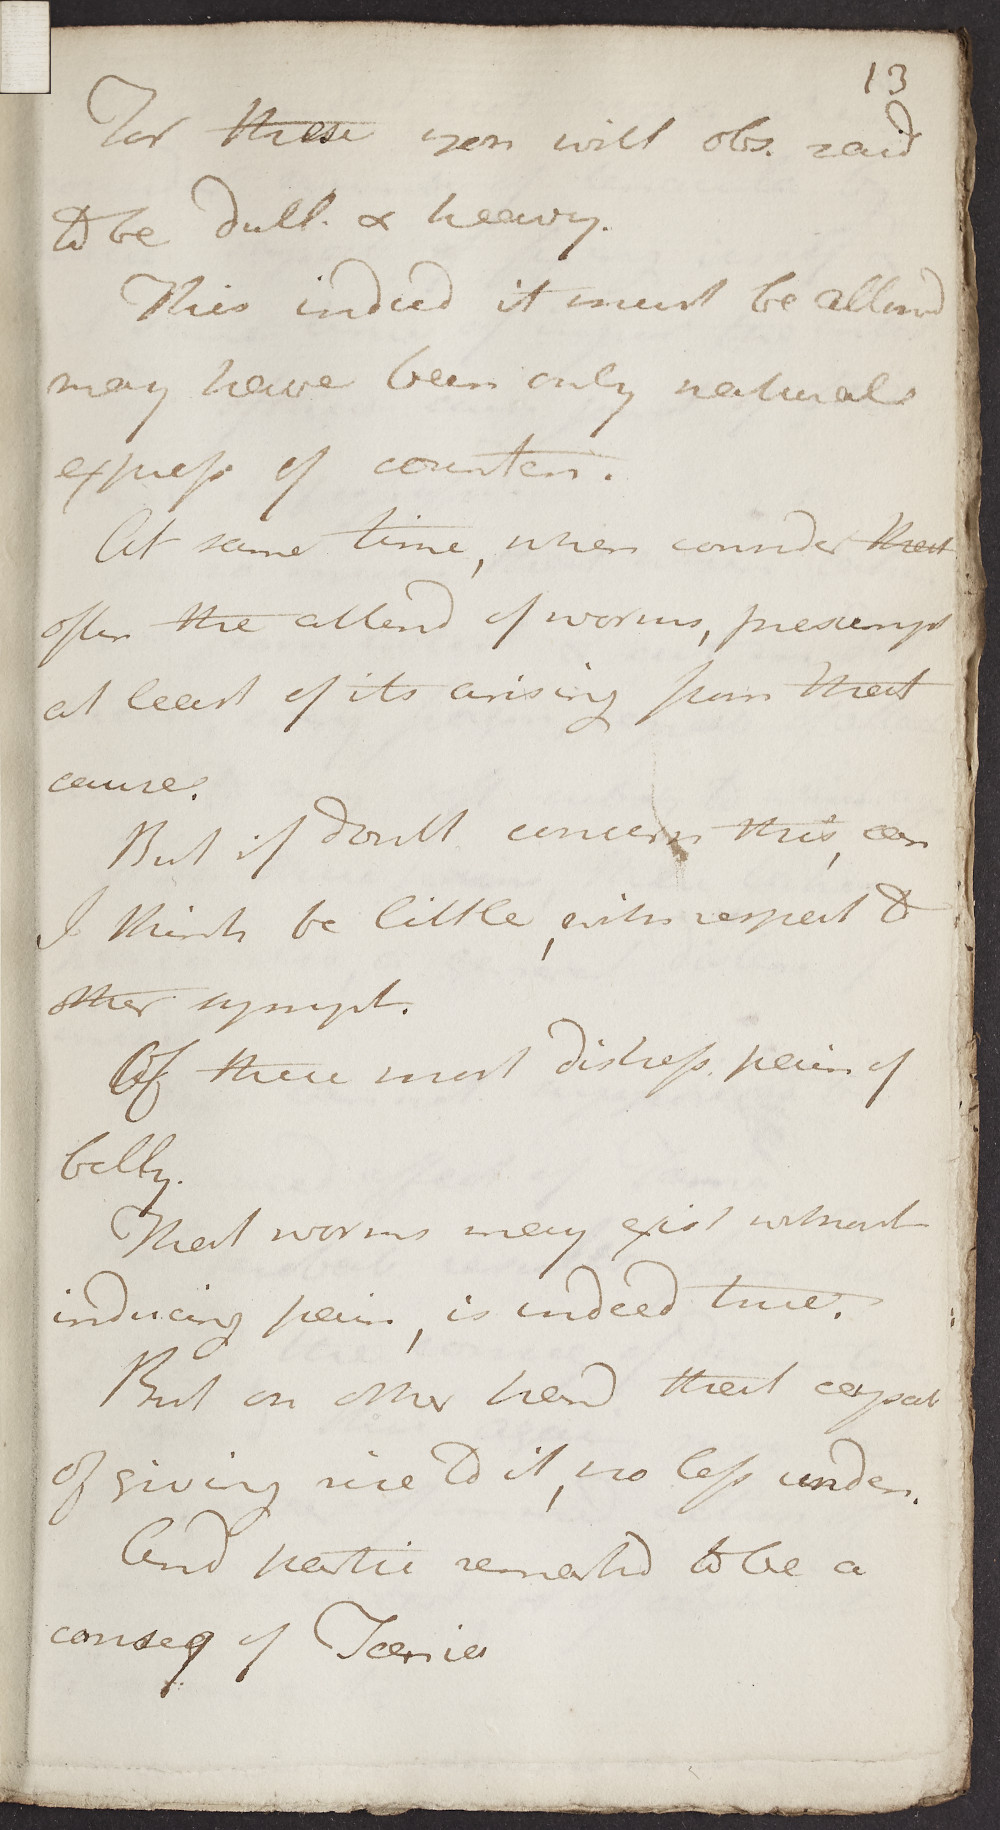 13
For these you will obs. said
to be dull. & heavy.
This indeed it must be allowd
may have been only natural
express of counten.
At same time, when consider that
often the attend of worms, presumpt
at least of its arising from that
cause.
But if doubt concern this, can
I think be little, with respect to
other sympt.
Of these most distress. pain of
belly.
That worms may exist without
inducing pain, is indeed true.
But on other hand that capab
of giving rise to it, no less unden.
And partic remarkd to be a
conseq of Taenia